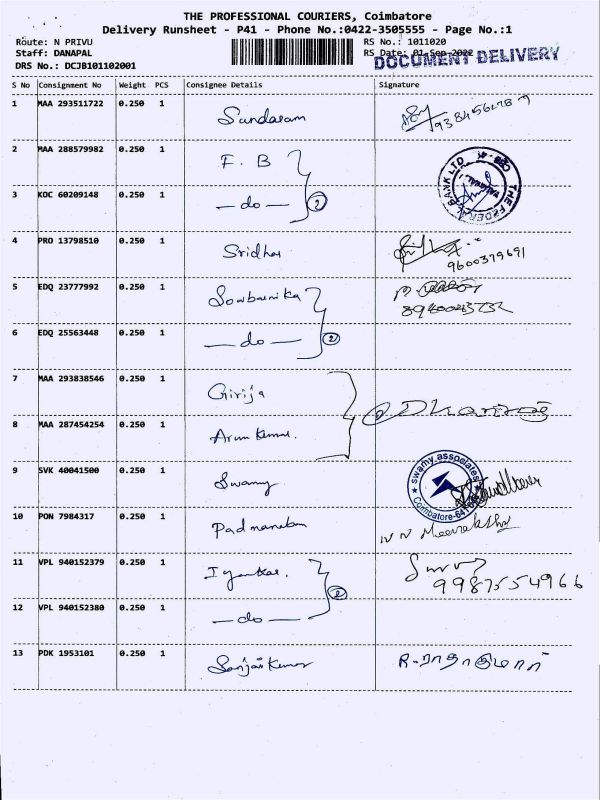 THE PROFESSIONAL COURIERS, Coimbatore
Delivery Runsheet - P41 - Phone No.:0422-3505555 - Page No.:1
Route: N PRIVU RS No.: 1011020
Staff: DANAPAL RS Date: 01-Sep-2022
DOCUMENT DELIVERY
DRS No.: DCJB101102001
S No Consignment No Weight PCS Consignee Details Signature
1 MAA 293511722 0.250 1 Sundaram
2 MAA 288579982 0.250 1 F. B
THE FEDERAL BANK LTD
3 KOC 60209148 0.250 1 — do — 2
4 PRO 13798510 0.250 1 Sridhar 9600379691
5 EDQ 23777992 0.250 1 Sowbarnika
6 EDQ 25563448 0.250 1 — do — 2
7 MAA 293838546 0.250 1 Girija
8 MAA 287454254 0.250 1 Arun Kumar. 2 Dhanraj
9 SVK 40041500 0.250 1 Swamy
swamy associates
Coimbatore-641
10 PON 7984317 0.250 1 Padmanaban
11 VPL 940152379 0.250 1 9987554966
12 VPL 940152380 0.250 1 — do — 2
13 PDK 1953101 0.250 1 Sanjai Kumar R. ராதாகுமார்